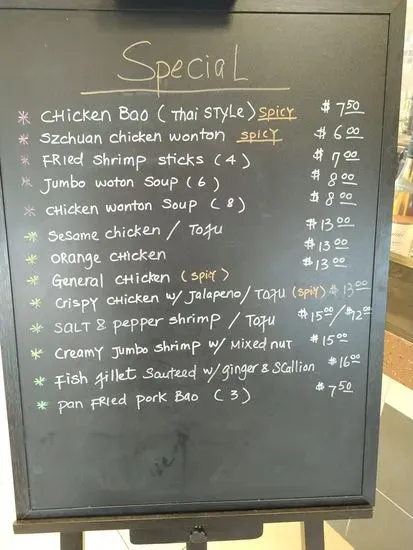 Special
* Chicken Bao (Thai Style) spicy $7.50
* Szchuan chicken wonton spicy $6.00
* Fried shrimp sticks (4) $7.00
* Jumbo woton Soup (6) $8.00
* Chicken wonton Soup (8) $8.00
* Sesame chicken / Tofu $13.00
* Orange chicken $13.00
* General chicken (spicy) $13.00
* Crispy chicken w/ Jalapeno / Tofu (spicy) $13.00
* Salt & pepper shrimp / Tofu $15.00/$12.00
* Creamy Jumbo shrimp w/ Mixed nut $15.00
* Fish fillet Sauteed w/ ginger & Scallion $16.00
* Pan Fried pork Bao (3) $7.50